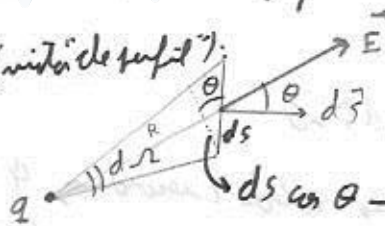 ("vista de perfil").
E⃗
θ
θ
ds⃗
R
ds
dΩ
q
ds cos θ –